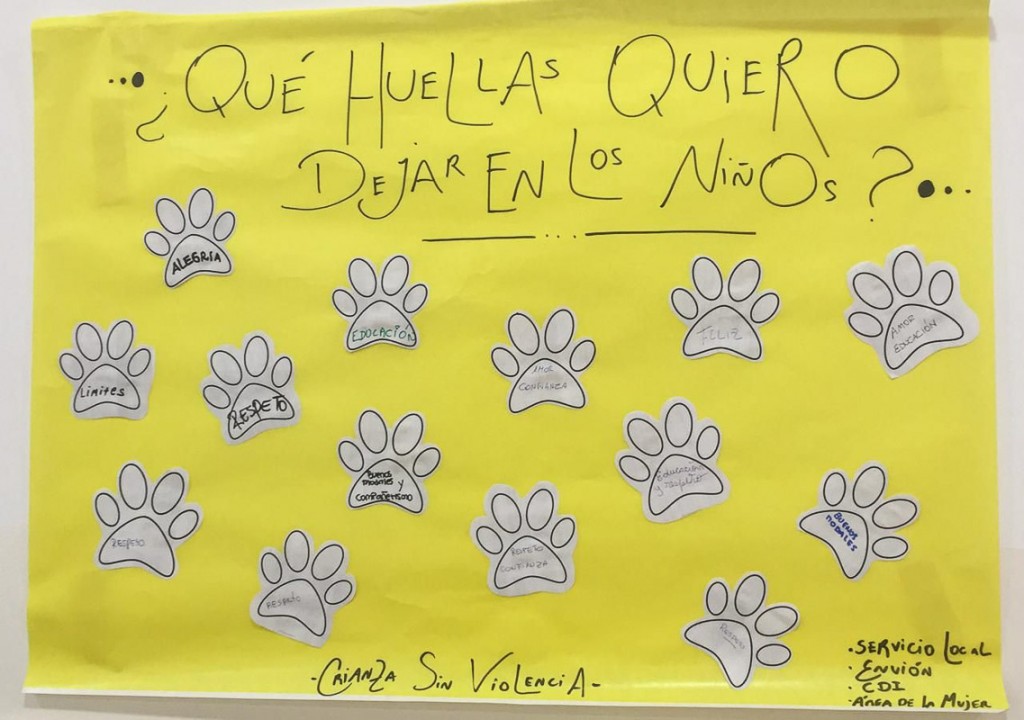 ¿QUÉ HUELLAS QUIERO
DEJAR EN LOS NIÑOS?
ALEGRIA
EDUCACIÓN
FELIZ
AMOR
EDUCACIÓN
Limites
RESPETO
AMOR
CONFIANZA
Buenos
modales y
COMPAÑERISMO
Educacion
y respeto
RESPETO
BUENOS
MODALES
RESPETO
CONFIANZA
RESPETO
RESPETO
-CRIANZA SIN VIOLENCIA-
·SERVICIO LOCAL
·ENVIÓN
·CDI
·AREA DE LA MUJER